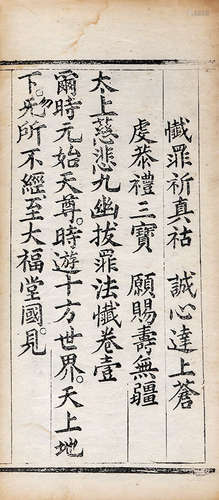 懺罪祈真祜　誠心達上蒼
虔恭禮三寶　願賜壽無疆
太上慈悲九幽拔罪法懺卷壹
爾時元始天尊。時遊十方世界。天上地
下。无所不經至大福堂國。見